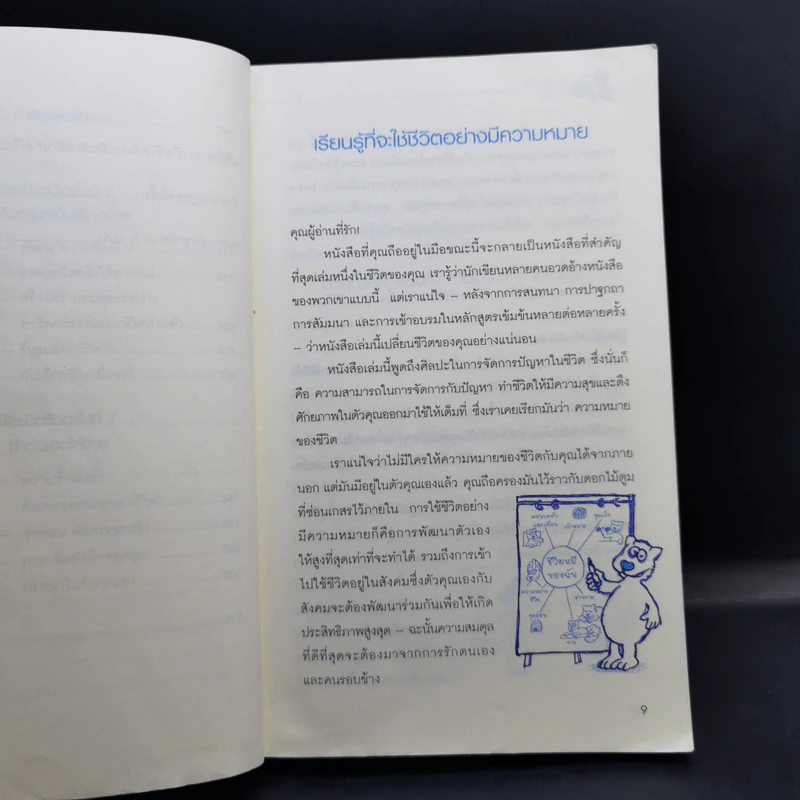 เรียนรู้ที่จะใช้ชีวิตอย่างมีความหมาย
คุณผู้อ่านที่รัก!
หนังสือที่คุณถืออยู่ในมือขณะนี้จะกลายเป็นหนังสือที่สำคัญ
ที่สุดเล่มหนึ่งในชีวิตของคุณ เรารู้ว่านักเขียนหลายคนอวดอ้างหนังสือ
ของพวกเขาแบบนี้ แต่เราแน่ใจ – หลังจากการสนทนา การปาฐกถา
การสัมมนา และการเข้าอบรมในหลักสูตรเข้มข้นหลายต่อหลายครั้ง
– ว่าหนังสือเล่มนี้เปลี่ยนชีวิตของคุณอย่างแน่นอน
หนังสือเล่มนี้พูดถึงศิลปะในการจัดการปัญหาในชีวิต ซึ่งนั่นก็
คือ ความสามารถในการจัดการกับปัญหา ทำชีวิตให้มีความสุขและดึง
ศักยภาพในตัวคุณออกมาใช้ให้เต็มที่ ซึ่งเราเคยเรียกมันว่า ความหมาย
ของชีวิต
เราแน่ใจว่าไม่มีใครให้ความหมายของชีวิตกับคุณได้จากภาย
นอก แต่มันมีอยู่ในตัวคุณเองแล้ว คุณถือครองมันไว้ราวกับดอกไม้ตูม
ที่ซ่อนเกสรไว้ภายใน การใช้ชีวิตอย่าง
มีความหมายก็คือการพัฒนาตัวเอง
ให้สูงที่สุดเท่าที่จะทำได้ รวมถึงการเข้า
ไปใช้ชีวิตอยู่ในสังคมซึ่งตัวคุณเองกับ
สังคมจะต้องพัฒนาร่วมกันเพื่อให้เกิด
ประสิทธิภาพสูงสุด – ฉะนั้นความสมดุล
ที่ดีที่สุดจะต้องมาจากการรักตนเอง
และคนรอบข้าง
ชีวิตหมี
ของฉัน
ความหมาย
ชีวิต
9